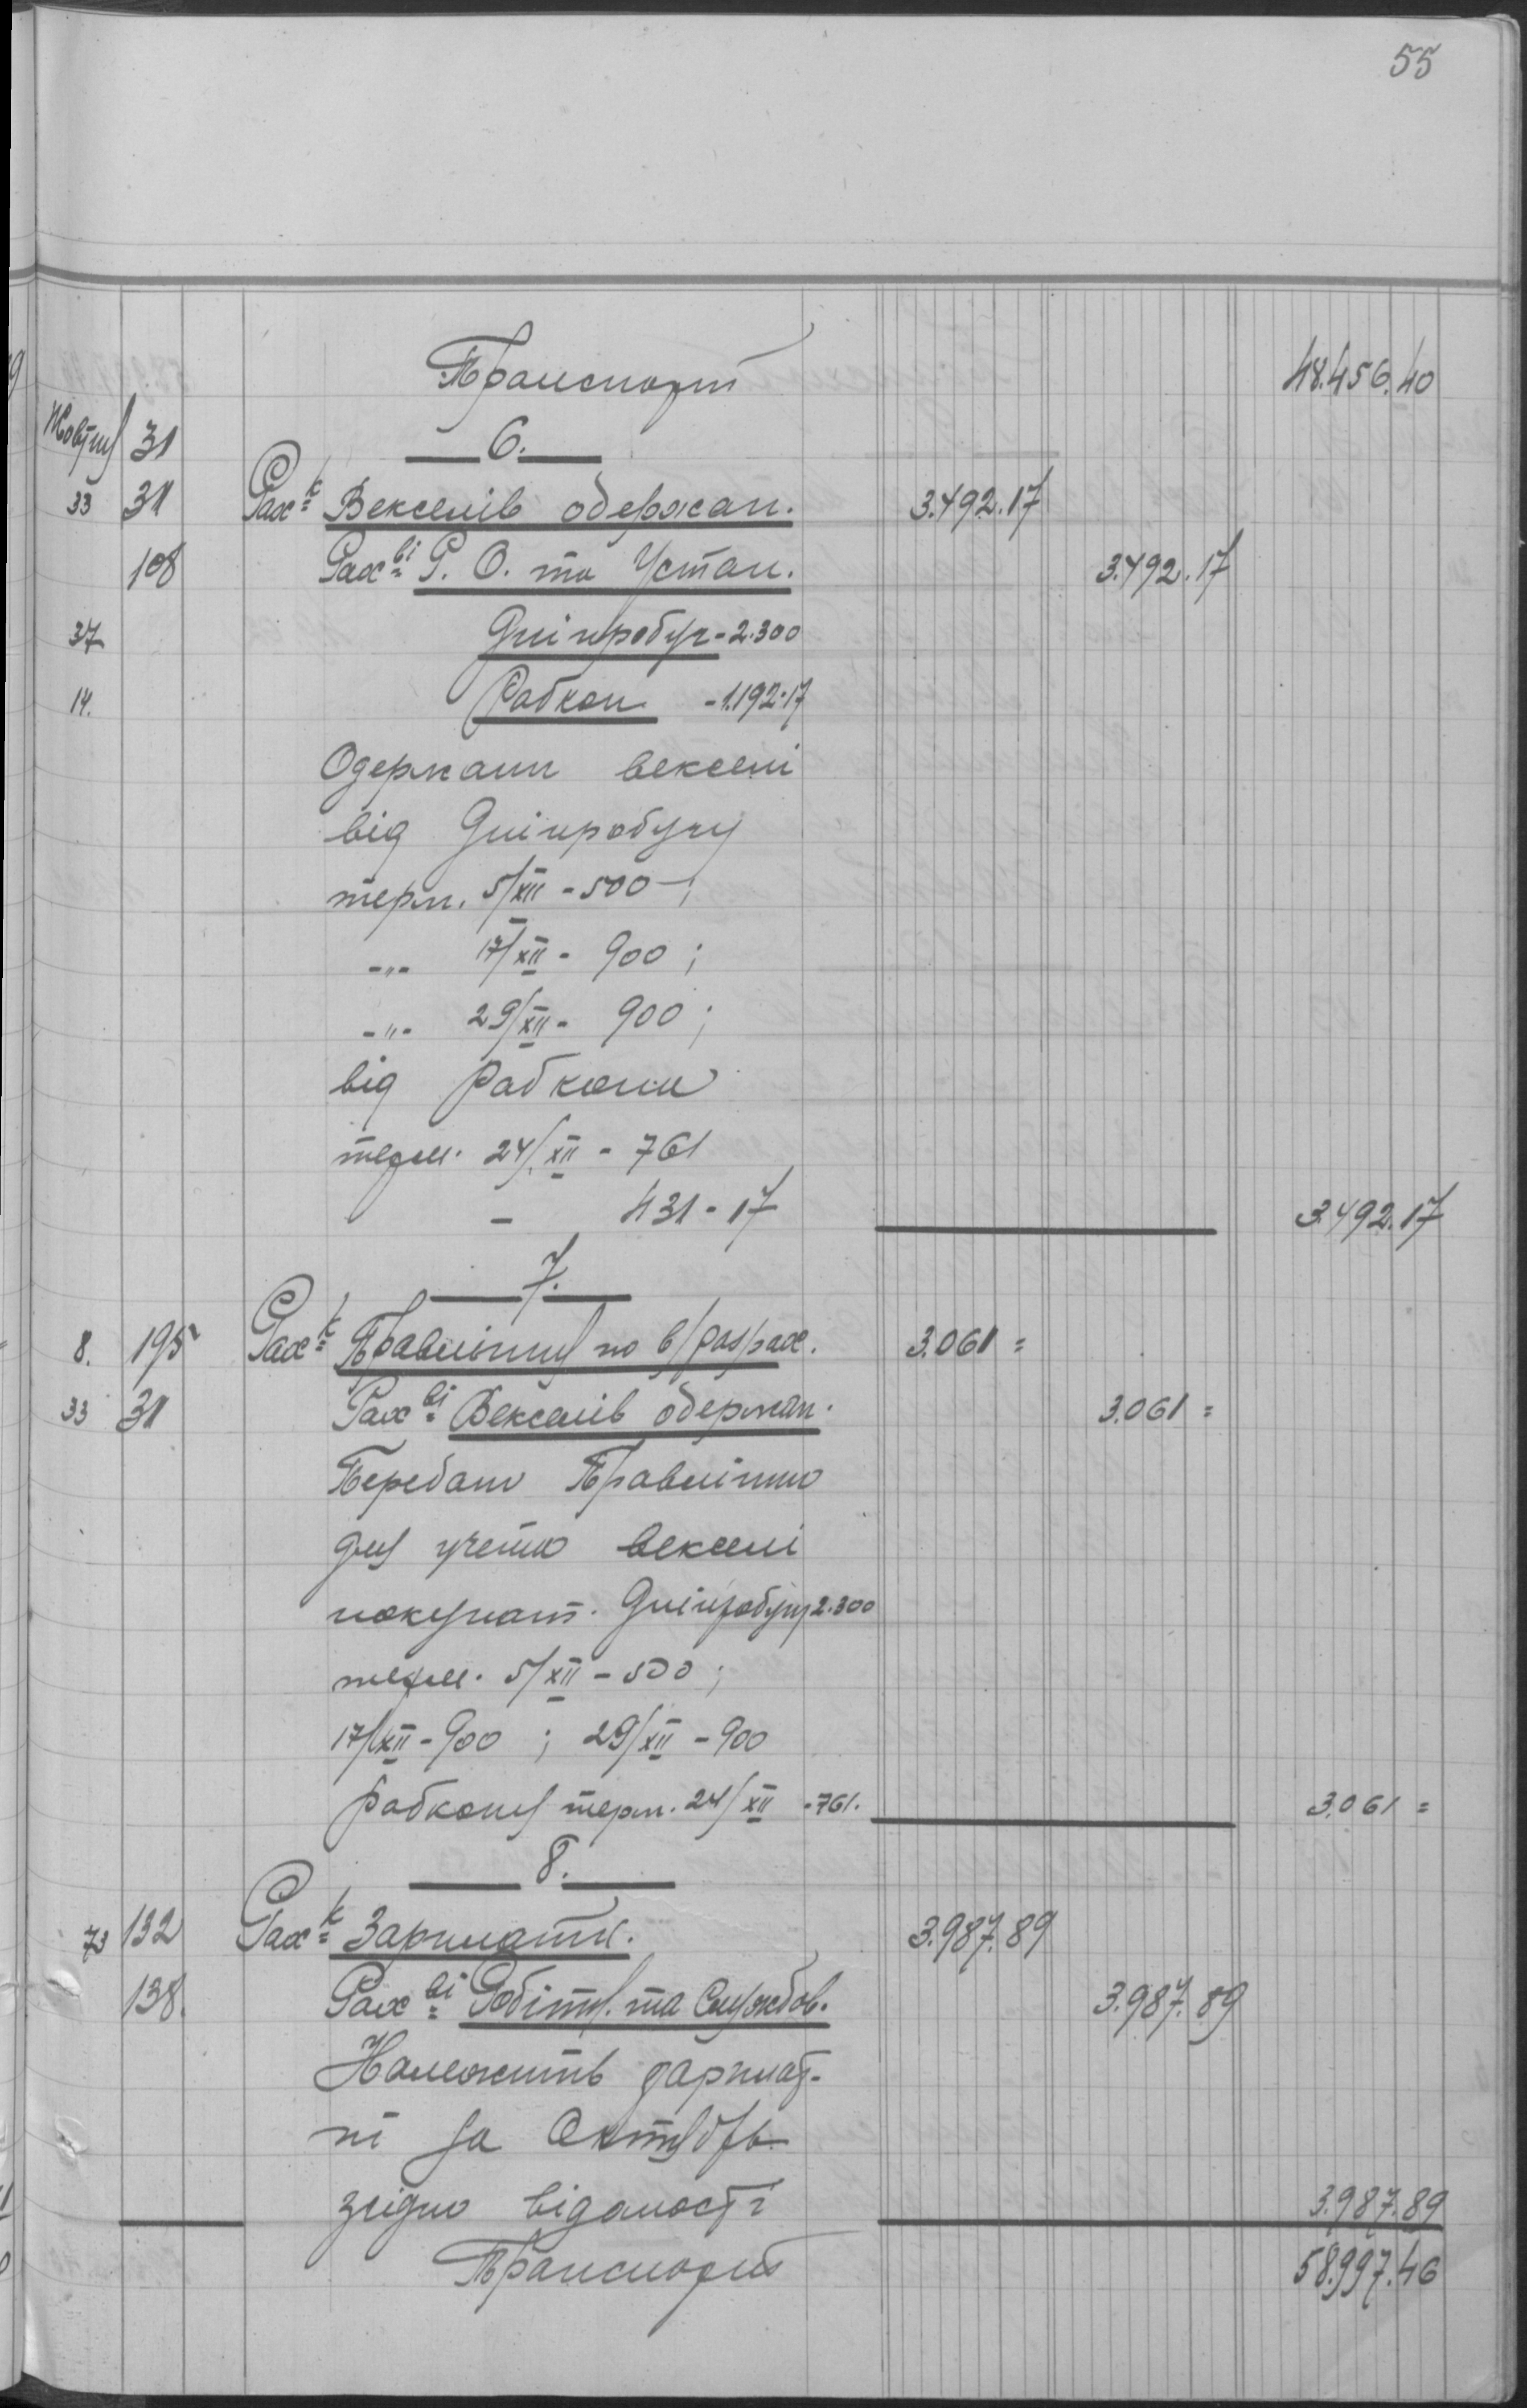 55
Транспорт 48.456.40
Жовтня 31 6.
33 31 Рах-к Векселів одержан. 3.492.17
108 Рах-ві Р. О. та Устан. 3.492.17
37 Дніпробуг - 2.300
14. Рабкоп - 1.192-17
Одержани векселі
від Дніпробугу
терм. 5/XII - 500 - ;
-"- 17/XII - 900 ;
-"- 29/XII - 900 ;
від Рабкопа
терм. 24/XII - 761
- 431 - 17 3.492.17
7.
8. 195 Рах-к Правління по в/раз/рах. 3.061 =
33 31 Рах-ві Векселів одержан. 3.061 =
Передано Правлінню
для учета векселі
покупат. Дніпробугу 2.300
терм. 5/XII - 500 ;
17/XII - 900 ; 29/XII - 900
Рабкопу терм. 24/XII - 761. 3.061 =
8.
73 132 Рах-к Зарплати. 3.987.89
138. Рах-ві Робітн. та Службов. 3.987.89
Належить зарплат-
ні за Октябрь
згідно відомості 3.987.89
Транспорт 58.997.46